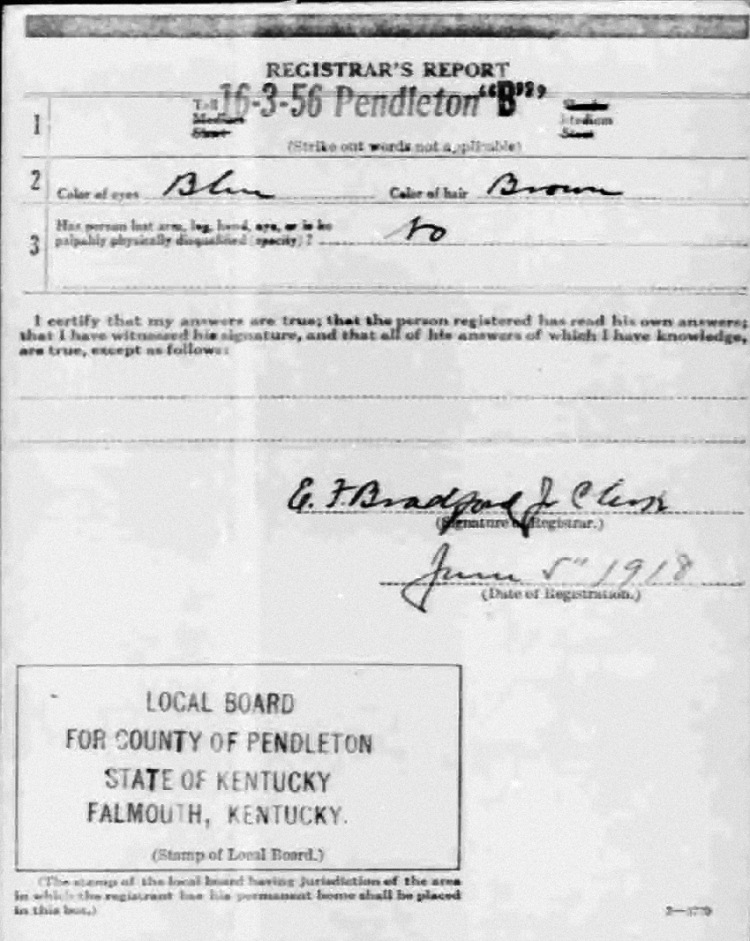 REGISTRAR'S REPORT
16-3-56 Pendleton "B"
1 Tall Medium Short Slender Medium Stout
(Strike out words not applicable)
2 Color of eyes Blue Color of hair Brown
Has person lost arm, leg, hand, eye, or is he
3 palpably physically disqualified (specify)? No
I certify that my answers are true; that the person registered has read his own answers;
that I have witnessed his signature, and that all of his answers of which I have knowledge,
are true, except as follows:
E. F. Bradford Jr Clerk
(Signature of Registrar.)
June 5" 1918
(Date of Registration.)
LOCAL BOARD
FOR COUNTY OF PENDLETON
STATE OF KENTUCKY
FALMOUTH, KENTUCKY.
(Stamp of Local Board.)
(The stamp of the local board having jurisdiction of the area
in which the registrant has his permanent home shall be placed
in this box.)